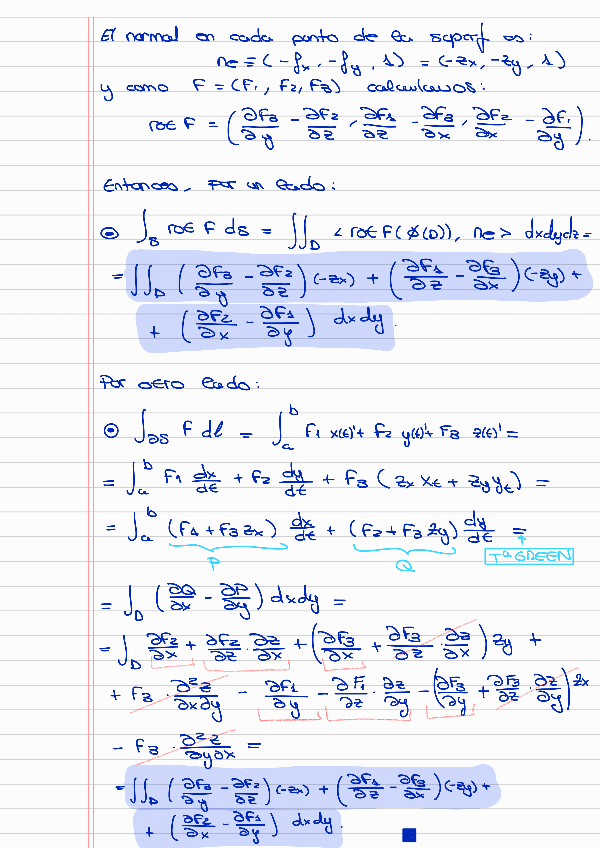 El normal en cada punto de la superf es:
ne = (-fx, -fy, 1) = (-zx, -zy, 1)
y como F = (F1, F2, F3) calculamos:
rot F = (∂F3/∂y - ∂F2/∂z, ∂F1/∂z - ∂F3/∂x, ∂F2/∂x - ∂F1/∂y).
Entonces, por un lado:
⊙ ∫_S rot F dS = ∬_D < rot F(ϕ(D)), ne > dxdydz =
= ∬_D (∂F3/∂y - ∂F2/∂z)(-zx) + (∂F1/∂z - ∂F3/∂x)(-zy) +
+ (∂F2/∂x - ∂F1/∂y) dxdy.
Por otro lado:
⊙ ∫_∂S F dl = ∫_a^b F1 x(t)' + F2 y(t)' + F3 z(t)' =
= ∫_a^b F1 dx/dt + F2 dy/dt + F3 (zx xt + zy yt) =
= ∫_a^b (F1 + F3 zx) dx/dt + (F2 + F3 zy) dy/dt =
P Q Tª GREEN
= ∫_D (∂Q/∂x - ∂P/∂y) dxdy =
= ∫_D ∂F2/∂x + ∂F2/∂z · ∂z/∂x + (∂F3/∂x + ∂F3/∂z · ∂z/∂x) zy +
+ F3 · ∂²z/∂x∂y - ∂F1/∂y - ∂F1/∂z · ∂z/∂y - (∂F3/∂y + ∂F3/∂z · ∂z/∂y) zx
- F3 · ∂²z/∂y∂x =
= ∬_D (∂F3/∂y - ∂F2/∂z)(-zx) + (∂F1/∂z - ∂F3/∂x)(-zy) +
+ (∂F2/∂x - ∂F1/∂y) dxdy.